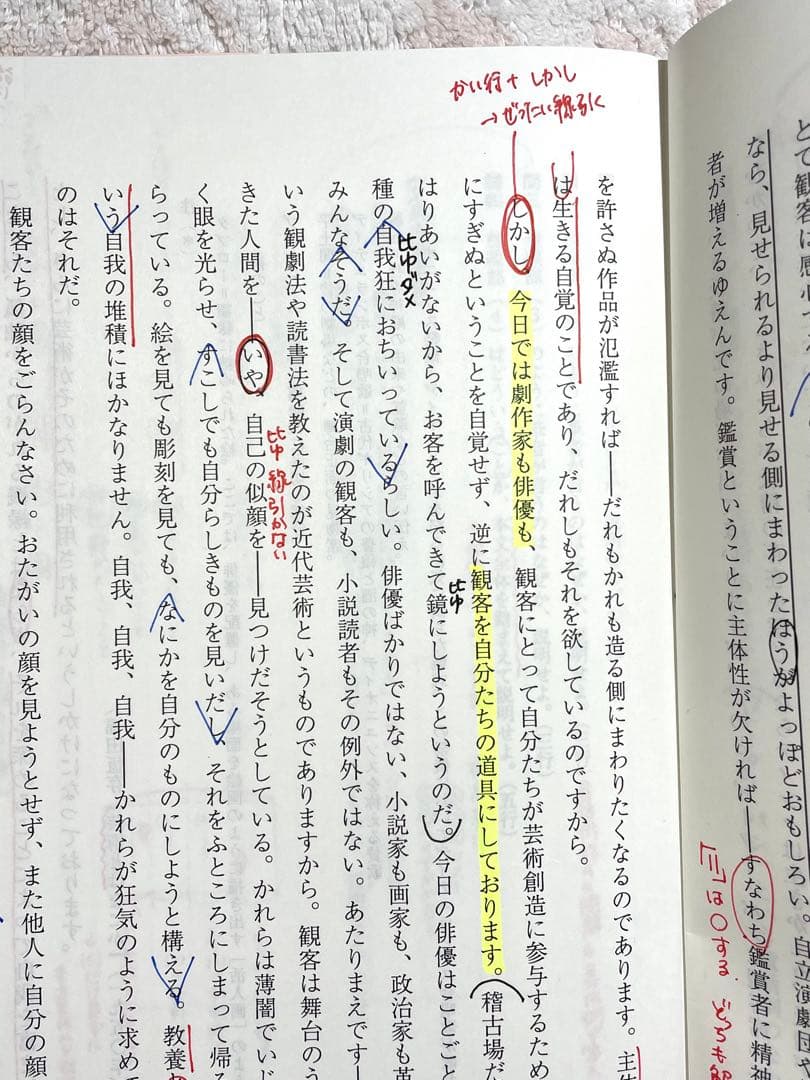 とて観客に感心
なら、見せられるより見せる側にまわったほうがよっぽどおもしろい。自立演劇団や
者が増えるゆえんです。鑑賞ということに主体性が欠ければ――すなわち鑑賞者に精神
「||」は○する どっちも
かい行+しかし
→ぜったい線引く
を許さぬ作品が氾濫すれば――だれもかれも造る側にまわりたくなるのであります。主体
は生きる自覚のことであり、だれしもそれを欲しているのですから。
しかし、今日では劇作家も俳優も、観客にとって自分たちが芸術創造に参与するため
にすぎぬということを自覚せず、逆に観客を自分たちの道具にしております。稽古場だ
はりあいがないから、お客を呼んできて鏡にしようというのだ。今日の俳優はことごと
比ゆ
種の自我狂におちいっているらしい。俳優ばかりではない、小説家も画家も、政治家も革
比ゆダメ
みんなそうだ。そして演劇の観客も、小説読者もその例外ではない。あたりまえです――
いう観劇法や読書法を教えたのが近代芸術というものでありますから。観客は舞台のう
きた人間を――いや、自己の似顔を――見つけだそうとしている。かれらは薄闇でいじ
比ゆ 線引かない
く眼を光らせ、すこしでも自分らしきものを見いだし、それをふところにしまって帰る
らっている。絵を見ても彫刻を見ても、なにかを自分のものにしようと構える。教養
いう自我の堆積にほかなりません。自我、自我、自我――かれらが狂気のように求めて
のはそれだ。
観客たちの顔をごらんなさい。おたがいの顔を見ようとせず、また他人に自分の顔